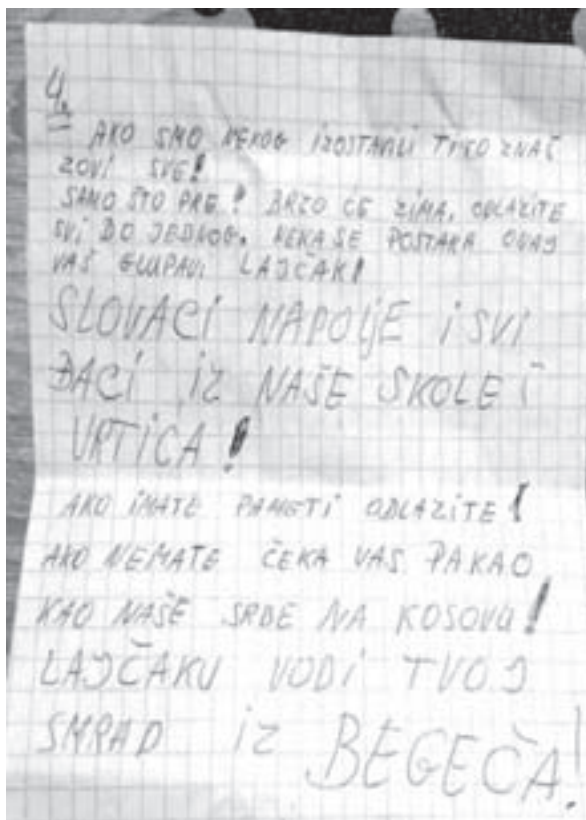 4.
AKO SMO NEKOG IZOSTAVILI ZNAŠ
ZOVI SVE!
SAMO ŠTO PRE! BRZO ĆE ZIMA, ODLAZITE
SVI DO JEDNOG. NEKA SE POSTARA OVAJ
VAŠ GLUPAVI LAJČAK!
SLOVACI NAPOLJE I SVI
ĐACI IZ NAŠE ŠKOLE I
VRTIĆA!
AKO IMATE PAMETI ODLAZITE!
AKO NEMATE ČEKA VAS PAKAO
KAO NAŠE SRBE NA KOSOVU!
LAJČAKU VODI TVOJ
SMRAD IZ BEGEČA!